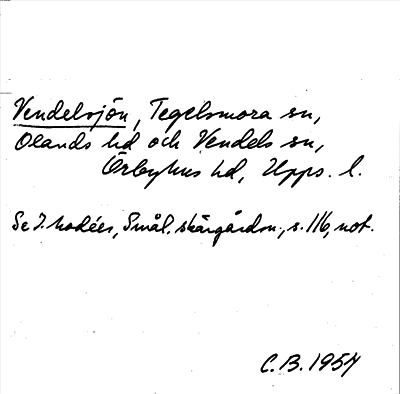 Vendelsjön, Tegelsmora sn,
Olands hd och Vendels sn,
Örbyhus hd, Upps. l.
Se I. Modéer, Smål. skärgårdsn., s. 116, not.
C.B. 1957